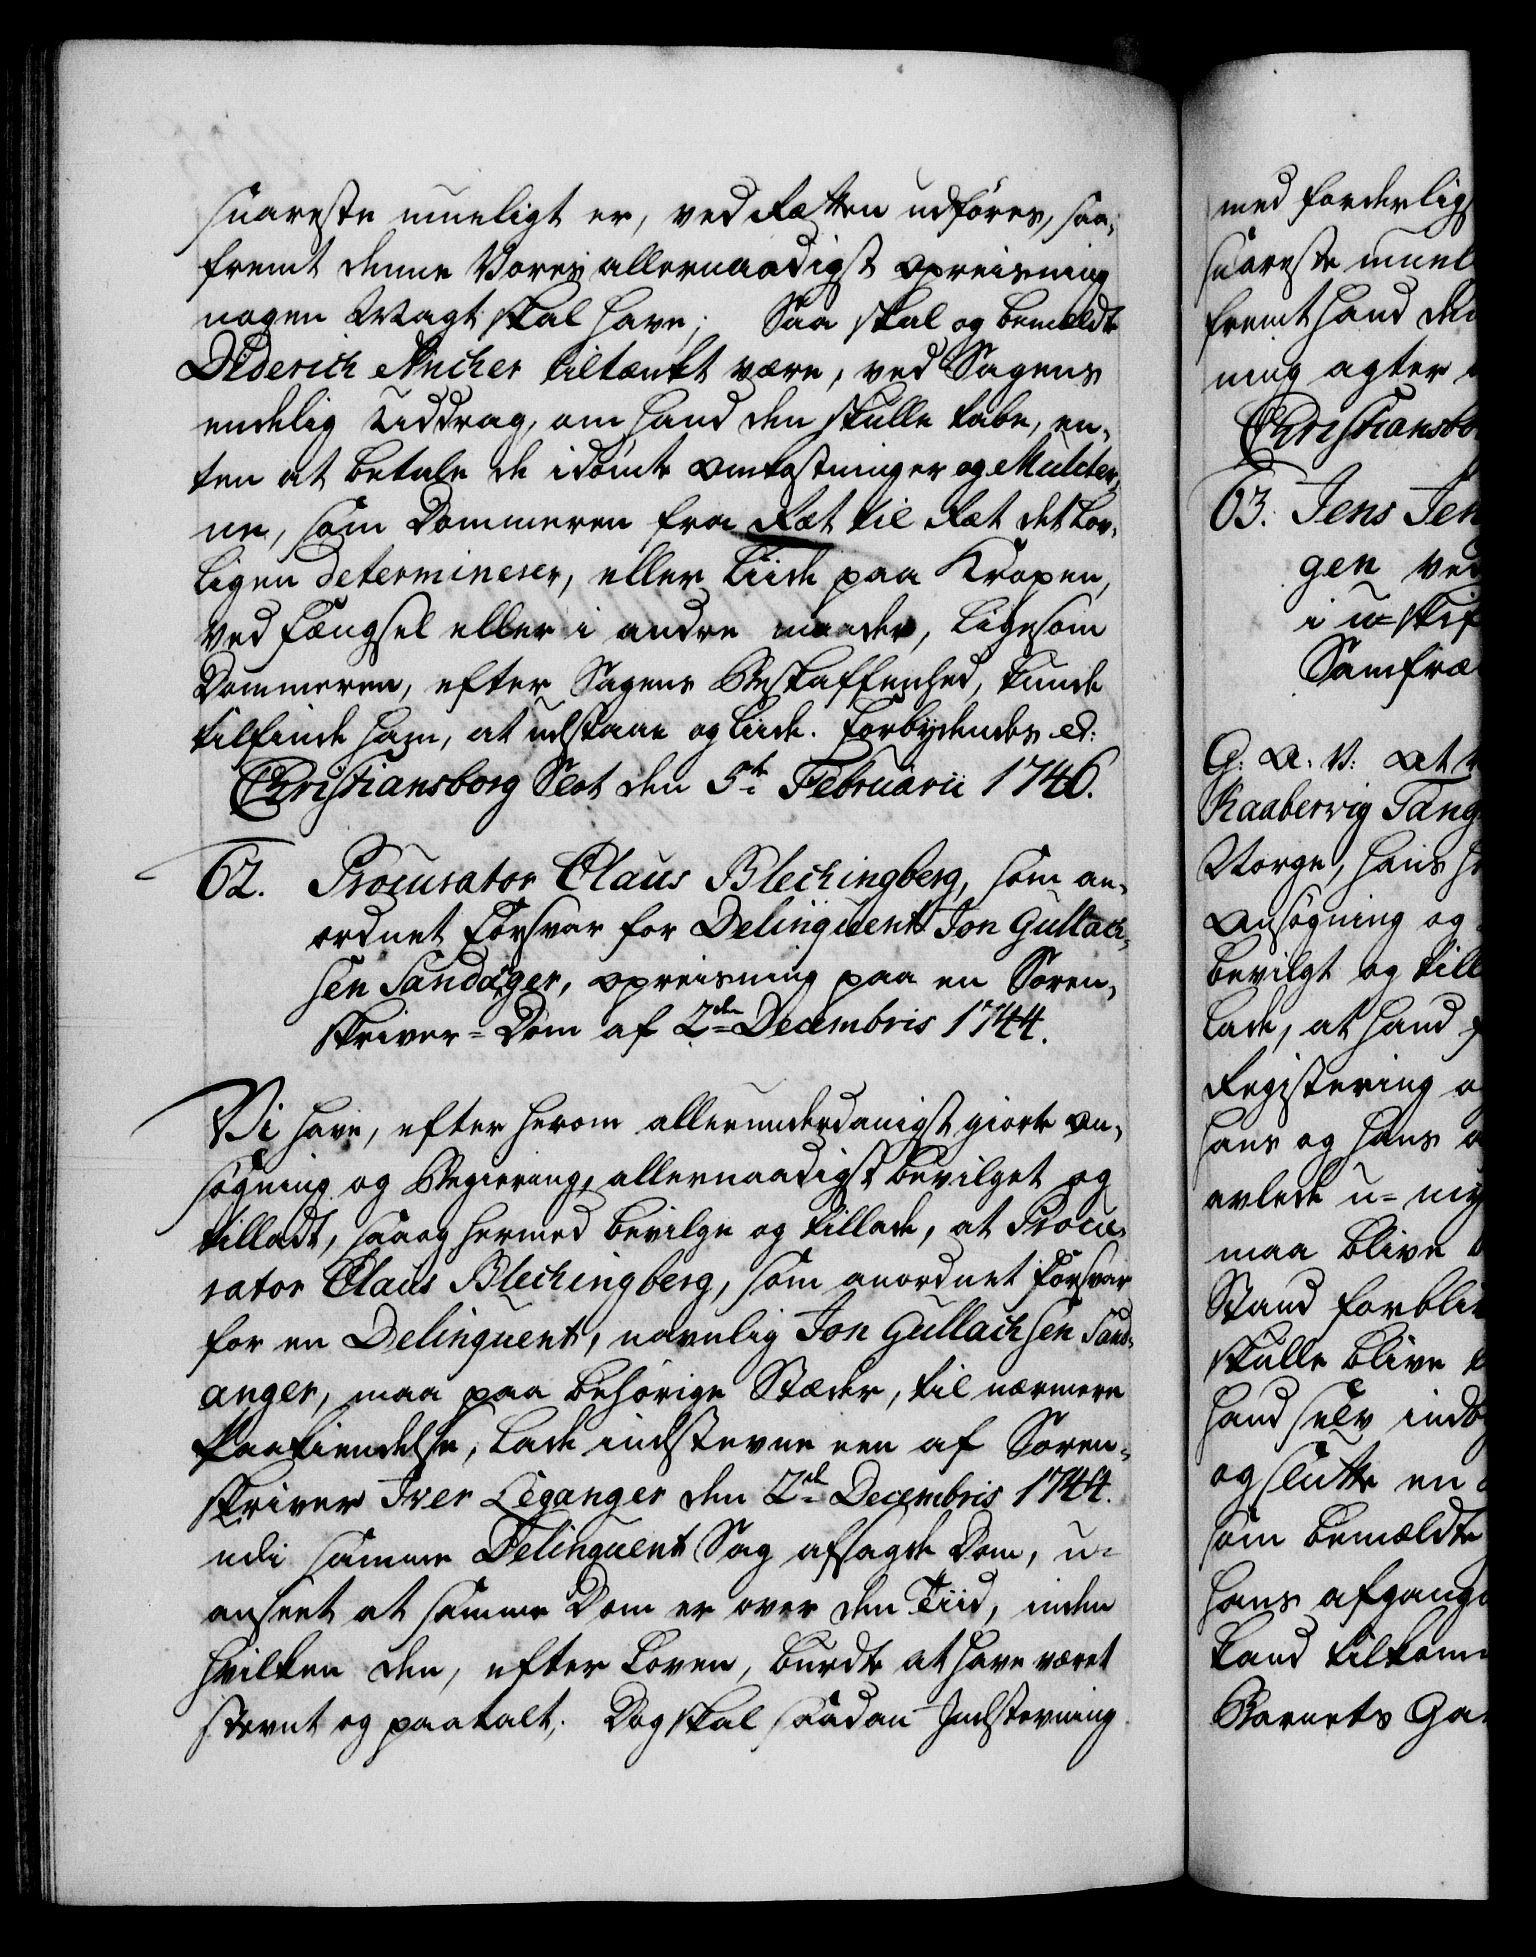 snareste mueligt er, ved Rætten udføres, saa-
fremt denne Vores allernaadigst Opreisning
nogen Magt skal have; Saa skal og bemeldte
Diderich tiltænkt være, ved Sagens
endelig Uddrag, om hand den skulle tabe, en-
ten at betale de idømte Omkostninger og Mulcter-
ne, som Dommeren fra Ræt til Ræt det Lov-
ligen determinerer, eller Liide paa Kropen,
ved Fængsel eller i andre maader, Ligesom
Dommeren, efter Sagens Beskaffenhed, kunde
tilfinde ham, at udstaae og Liide. Forbydendes &:
Christiansborg Slot den 5te Februarii 1746.
62. Procurator Claus Blechingberg, som an-
ordnet Forsvar for Delinquent Jon Gullach-
sen Sandager, Opreisning paa en Soren-
skriver-Dom af 2den Decembris 1744.
Vi have, efter herom allerunderdanigst giorte An-
søgning og Begiering, allernaadigst bevilget og
tilladt, saa og hermed bevilge og tillade, at Procu-
rator Claus Blechingberg, som anordnet Forsvar
for en Delinquent, navnlig Jon Gullachsen Sand-
anger, maa paa behørige Stæder, til nærmere
Paakiendelse, Lade indstevne een af Soren-
skriver Iver Leganger den 2den Decembris 1744.
udi samme Delinquent Sag afsagde Dom, u-
anseet at samme Dom er over den Tiid, inden
hvilken den, efter Loven, burdte at have været
stevnt og paatalt; Dog skal saadan Indstevning
med forderligst
snareste muel
fremt hand den
ning agter
Christiansbo
63. Jens Jen
gen ved
i u-skif
Samfræ
G. A. V: At v
Raabervig Tang
Norge, hans
Ansøgning og
bevilgt og till
Lade, at hand
Registering o
hans og hans
avlede u-my
maa blive
Stand forbliv
skulle blive
hand selv indb
og slutte en
som bemældte
hans afgang
Land tilkom
Barnets Ga